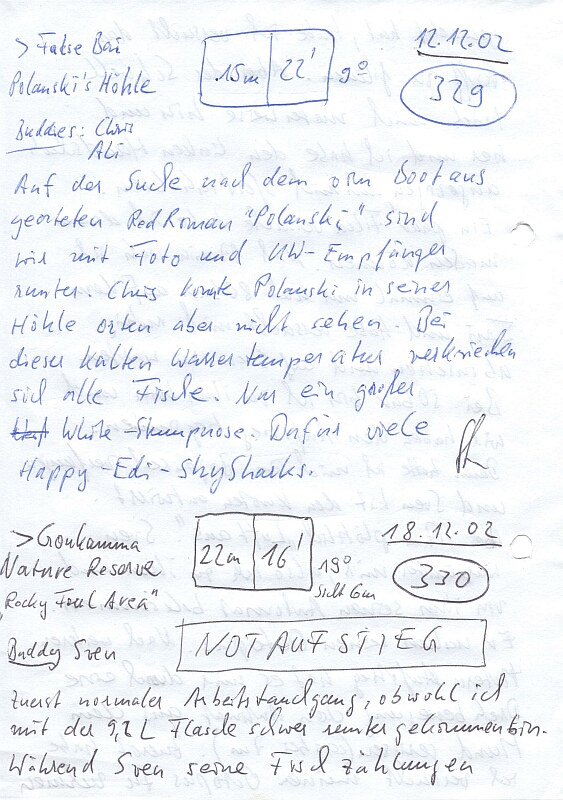 > False Bai
Polanski's Höhle
15m 22' 9°
12.12.02
329
Buddies: Chris
Ali
Auf der Suche nach dem vom Boot aus
georteten Red Roman "Polanski" sind
wir mit Foto und UW-Empfänger
runter. Chris konnte Polanski in seiner
Höhle orten aber nicht sehen. Bei
dieser kalten Wassertemperatur verkriechen
sich alle Fische. Nur ein großer
White-Stumpnose. Dafür viele
Happy-Edi-ShySharks.
> Goukamma
Nature Reserve
"Rocky Foul Area"
22m 16' 19°
Sicht 6m
18.12.02
330
Buddy Sven
NOTAUFSTIEG
Zuerst normaler Arbeitstauchgang, obwohl ich
mit der 9,2 L Flasche schwer runter gekommen bin.
Während Sven seine Fischzählungen